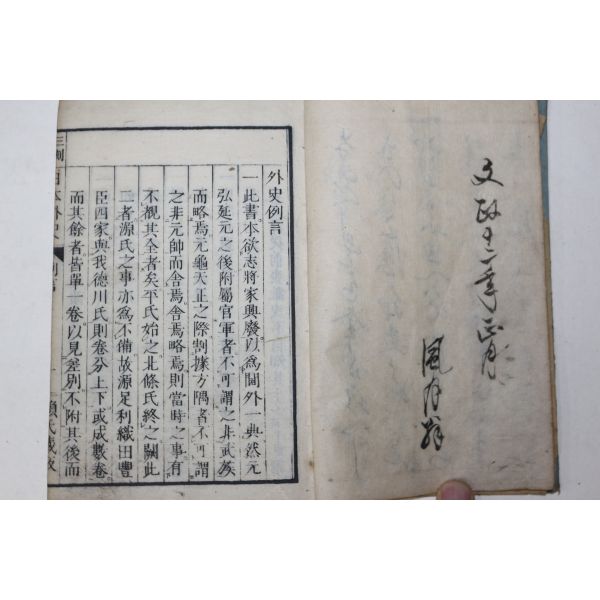 文政十二年正月
風月翁
外史例言
一此書本欲志將家興廢以爲閫外一典然元
弘延元之後附屬官軍者不可謂之非武族
而略焉元龜天正之際割據方隅者不可謂
之非元帥而舍焉舍焉略焉則當時之事有
不覩其全者矣平氏始之北條氏終之闕此
二者源氏之事亦爲不備故源足利織田豐
臣四家與我德川氏則卷分上下或成數卷
而其餘者皆單一卷以見差別不附其後而
三刻日本外史
賴氏藏板